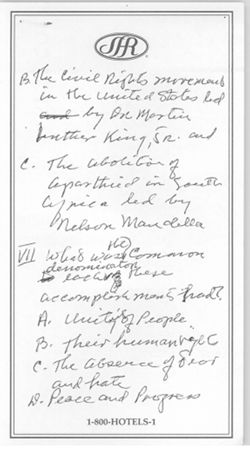 SfR
B. The Civil Rights movement
in the United States led
and by Dr. Martin
Luther King, Jr. and
C. The abolition of
apartheid in South
Africa led by
Nelson Mandella
VII What was the common
denominator
each of these
accomplishments had?
A. Unity of People
B. Their human right
C. The absence of fear
and hate
D. Peace and Progress
1-800-HOTELS-1